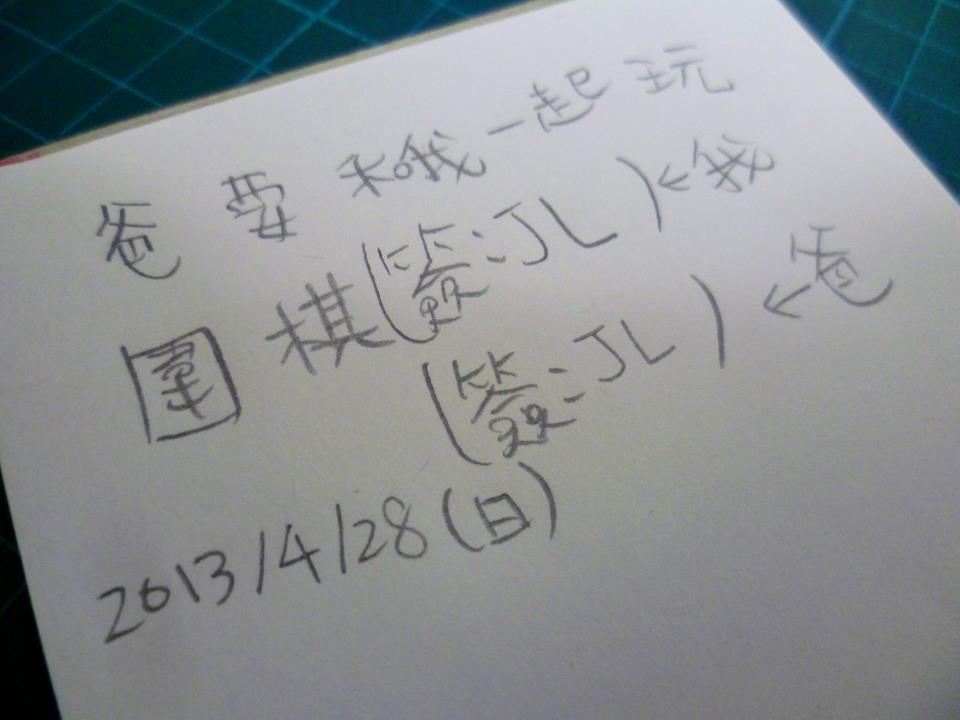 爸要和我一起玩
圍棋(簽:JL)←我
(簽:JL)←爸
2013/4/28(日)